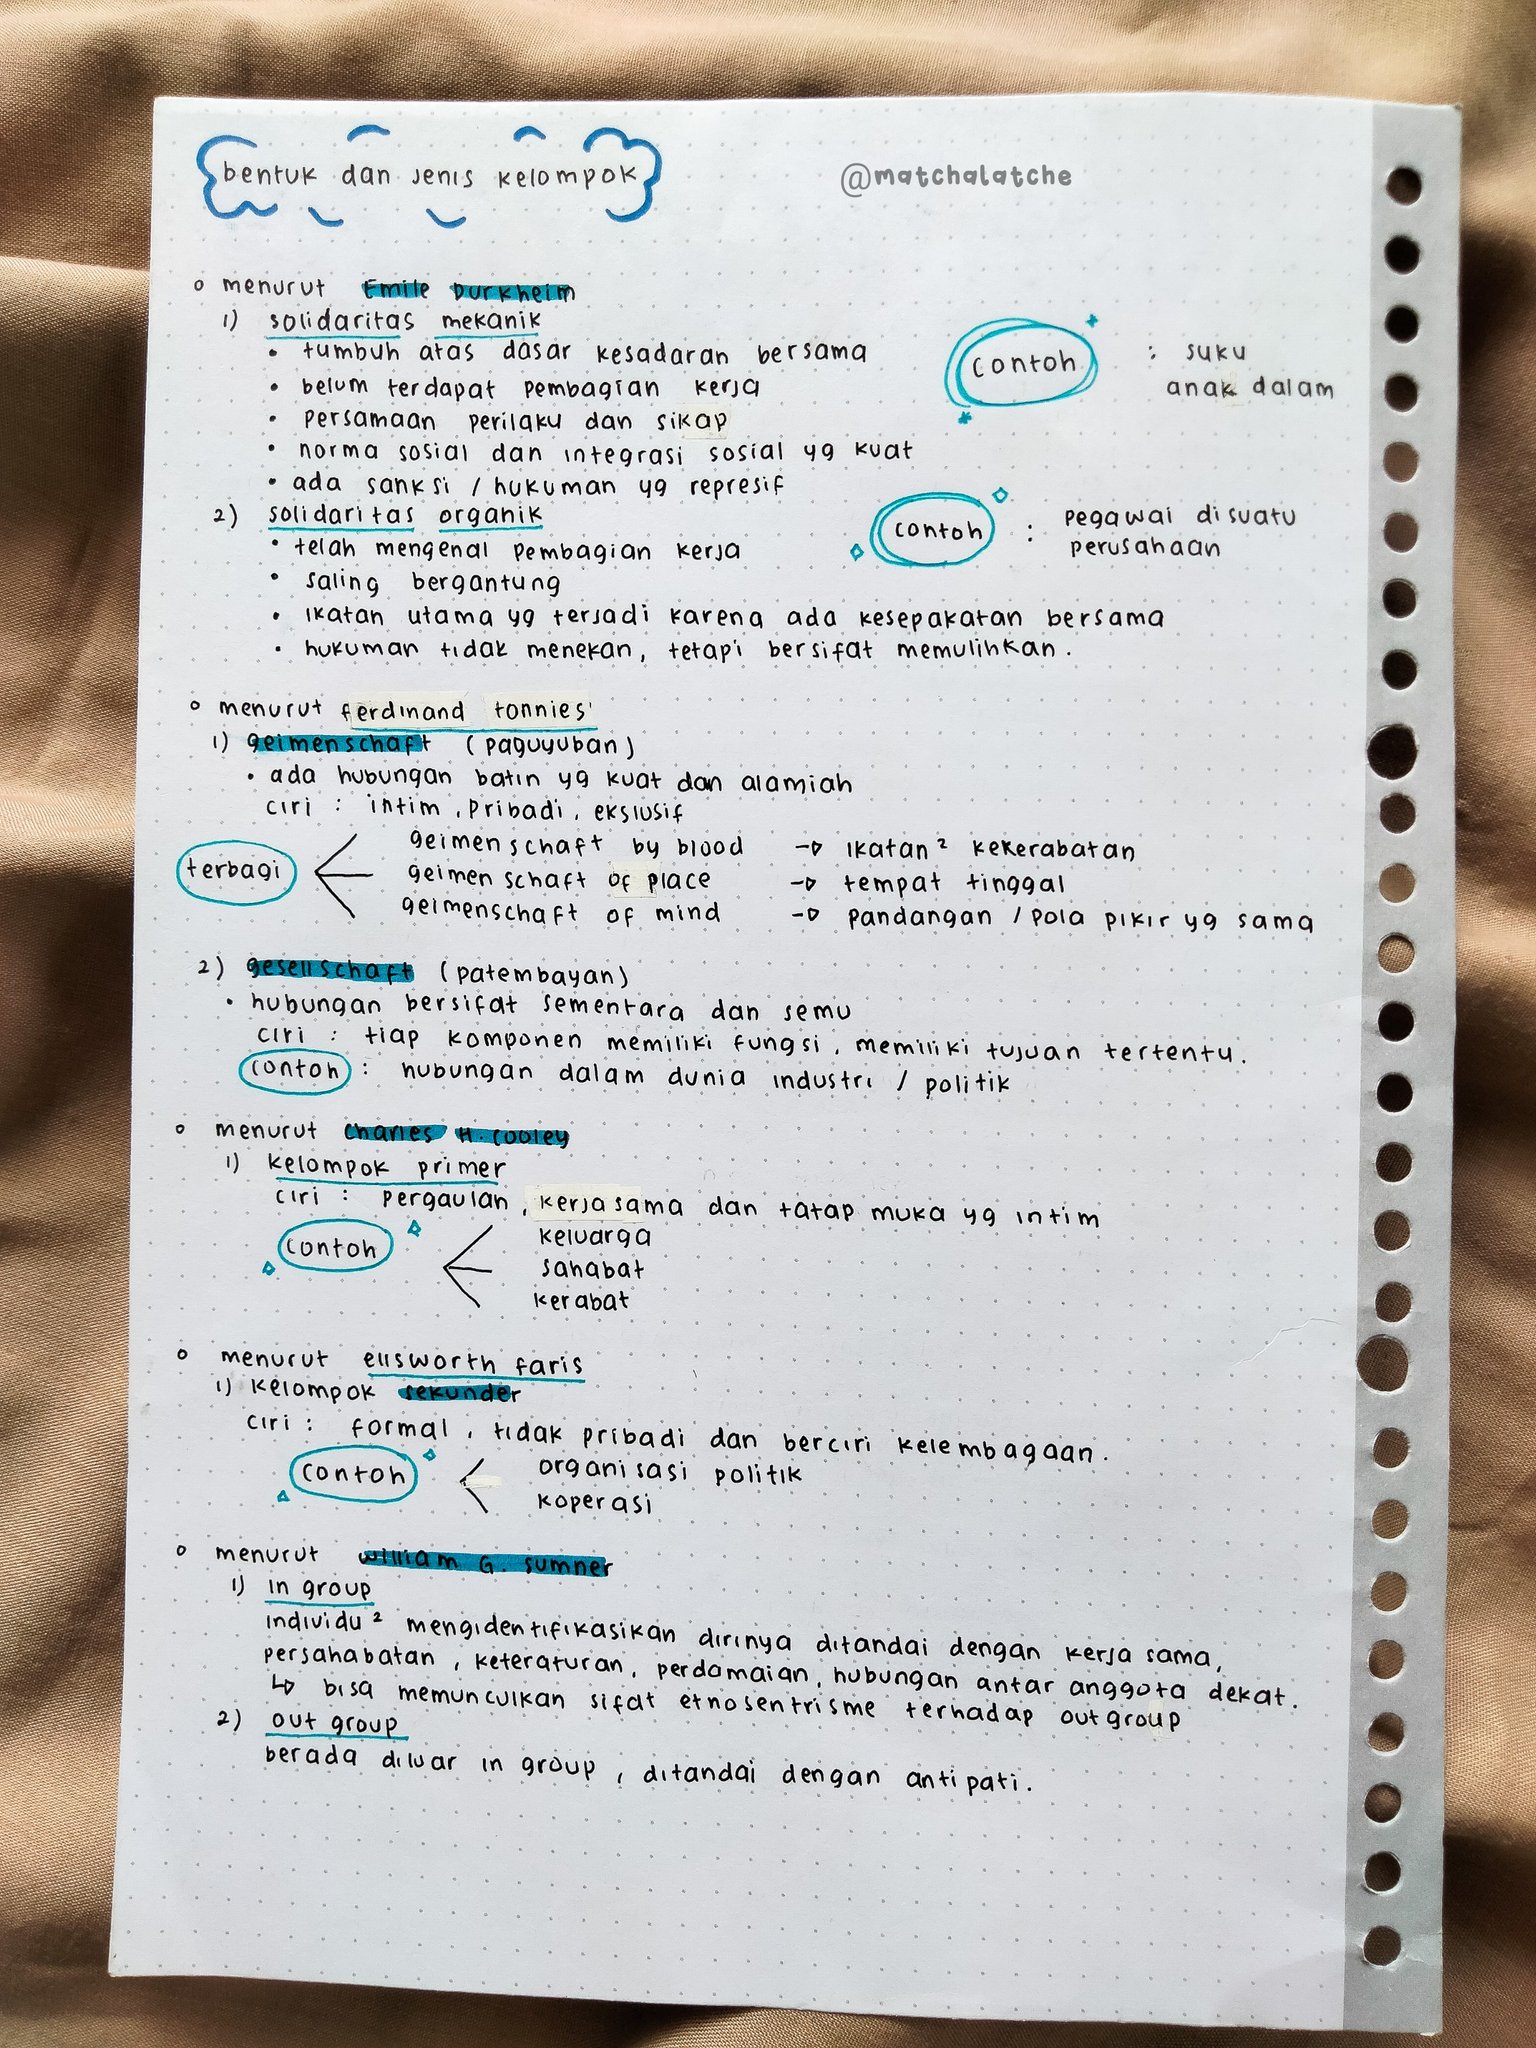 bentuk dan jenis kelompok
@matchalatche
menurut Emile Durkheim
1) solidaritas mekanik
• tumbuh atas dasar kesadaran bersama
contoh : suku
anak dalam
• belum terdapat pembagian kerja
• persamaan perilaku dan sikap
• norma sosial dan integrasi sosial yg kuat
• ada sanksi / hukuman yg represif
2) solidaritas organik
contoh : pegawai disuatu
perusahaan
• telah mengenal pembagian kerja
• saling bergantung
• ikatan utama yg terjadi karena ada kesepakatan bersama
• hukuman tidak menekan, tetapi bersifat memulihkan.
menurut ferdinand tonnies'
1) geimenschaft (paguyuban)
• ada hubungan batin yg kuat dan alamiah
ciri : intim, pribadi, ekslusif
terbagi
geimenschaft by blood → ikatan² kekerabatan
geimenschaft of place → tempat tinggal
geimenschaft of mind → pandangan / pola pikir yg sama
2) gesellschaft (patembayan)
• hubungan bersifat sementara dan semu
ciri : tiap komponen memiliki fungsi, memiliki tujuan tertentu.
contoh : hubungan dalam dunia industri / politik
menurut Charles H. Cooley
1) kelompok primer
ciri : pergaulan, kerjasama dan tatap muka yg intim
contoh
keluarga
sahabat
kerabat
menurut ellsworth faris
1) kelompok sekunder
ciri : formal, tidak pribadi dan berciri kelembagaan.
contoh
organisasi politik
koperasi
menurut william G. sumner
1) in group
individu² mengidentifikasikan dirinya ditandai dengan kerja sama,
persahabatan, keteraturan, perdamaian, hubungan antar anggota dekat.
↳ bisa memunculkan sifat etnosentrisme terhadap outgroup
2) out group
berada diluar in group, ditandai dengan antipati.